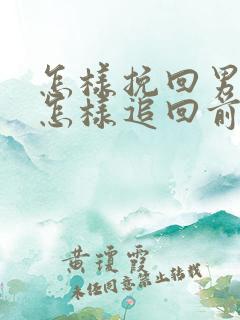 怎样挽回男
怎样追回前
黄琼霞
未经同意禁止转载